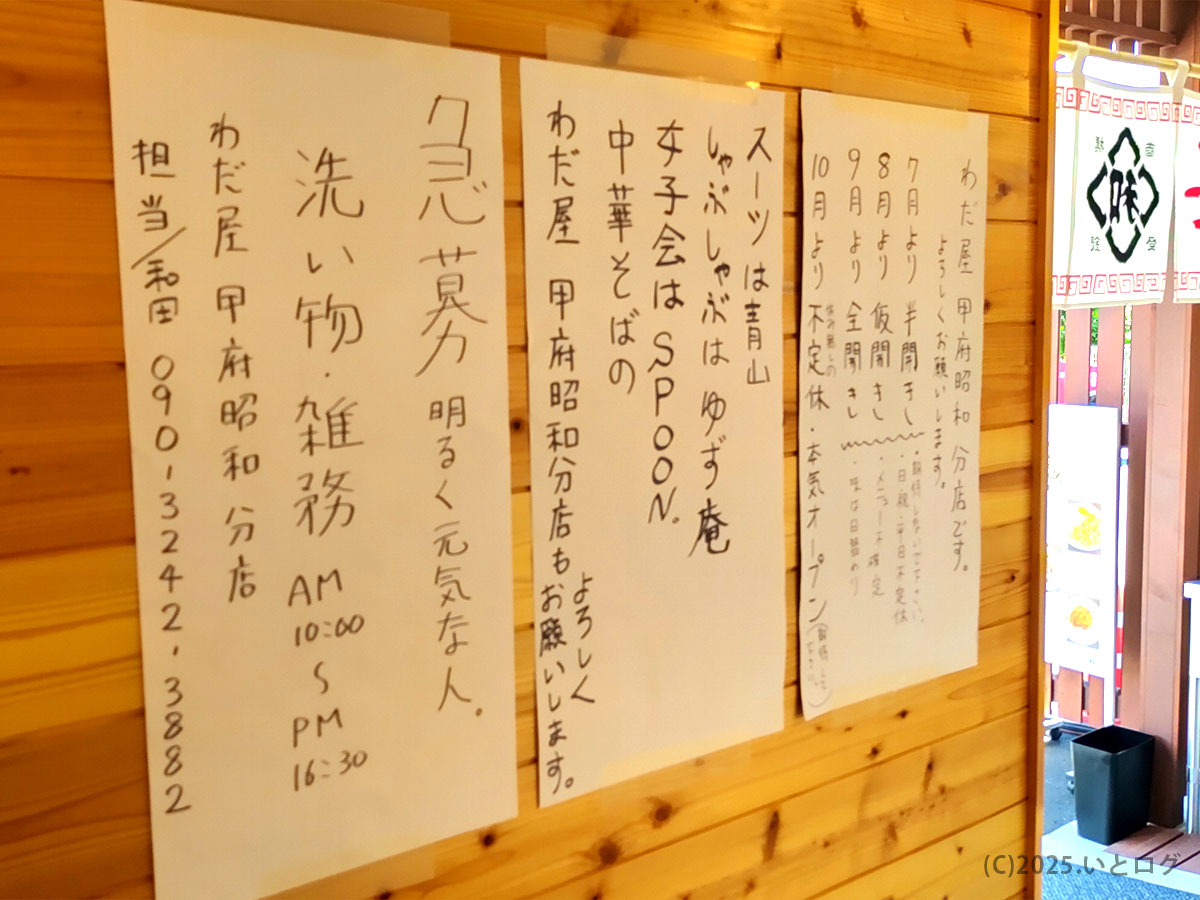 わだ屋 甲府昭和分店です。
よろしくお願いします。
7月より半開きし
8月より仮開きし
9月より全開きし
10月より不定休・本気オープン
休み無しの
・期待しないで下さい。
・日、祝、平日不定休
・メニュー不確定
・味は日替わり
スーツは青山
しゃぶしゃぶはゆず庵
女子会はSPOON。
中華そばの
わだ屋 甲府昭和分店も
よろしく
お願いします。
急募 明るく元気な人。
洗い物・雑務 AM
10:00
PM
16:30
わだ屋 甲府昭和分店
担当/和田 090-3242-3882
味
(C)2025.いとログ